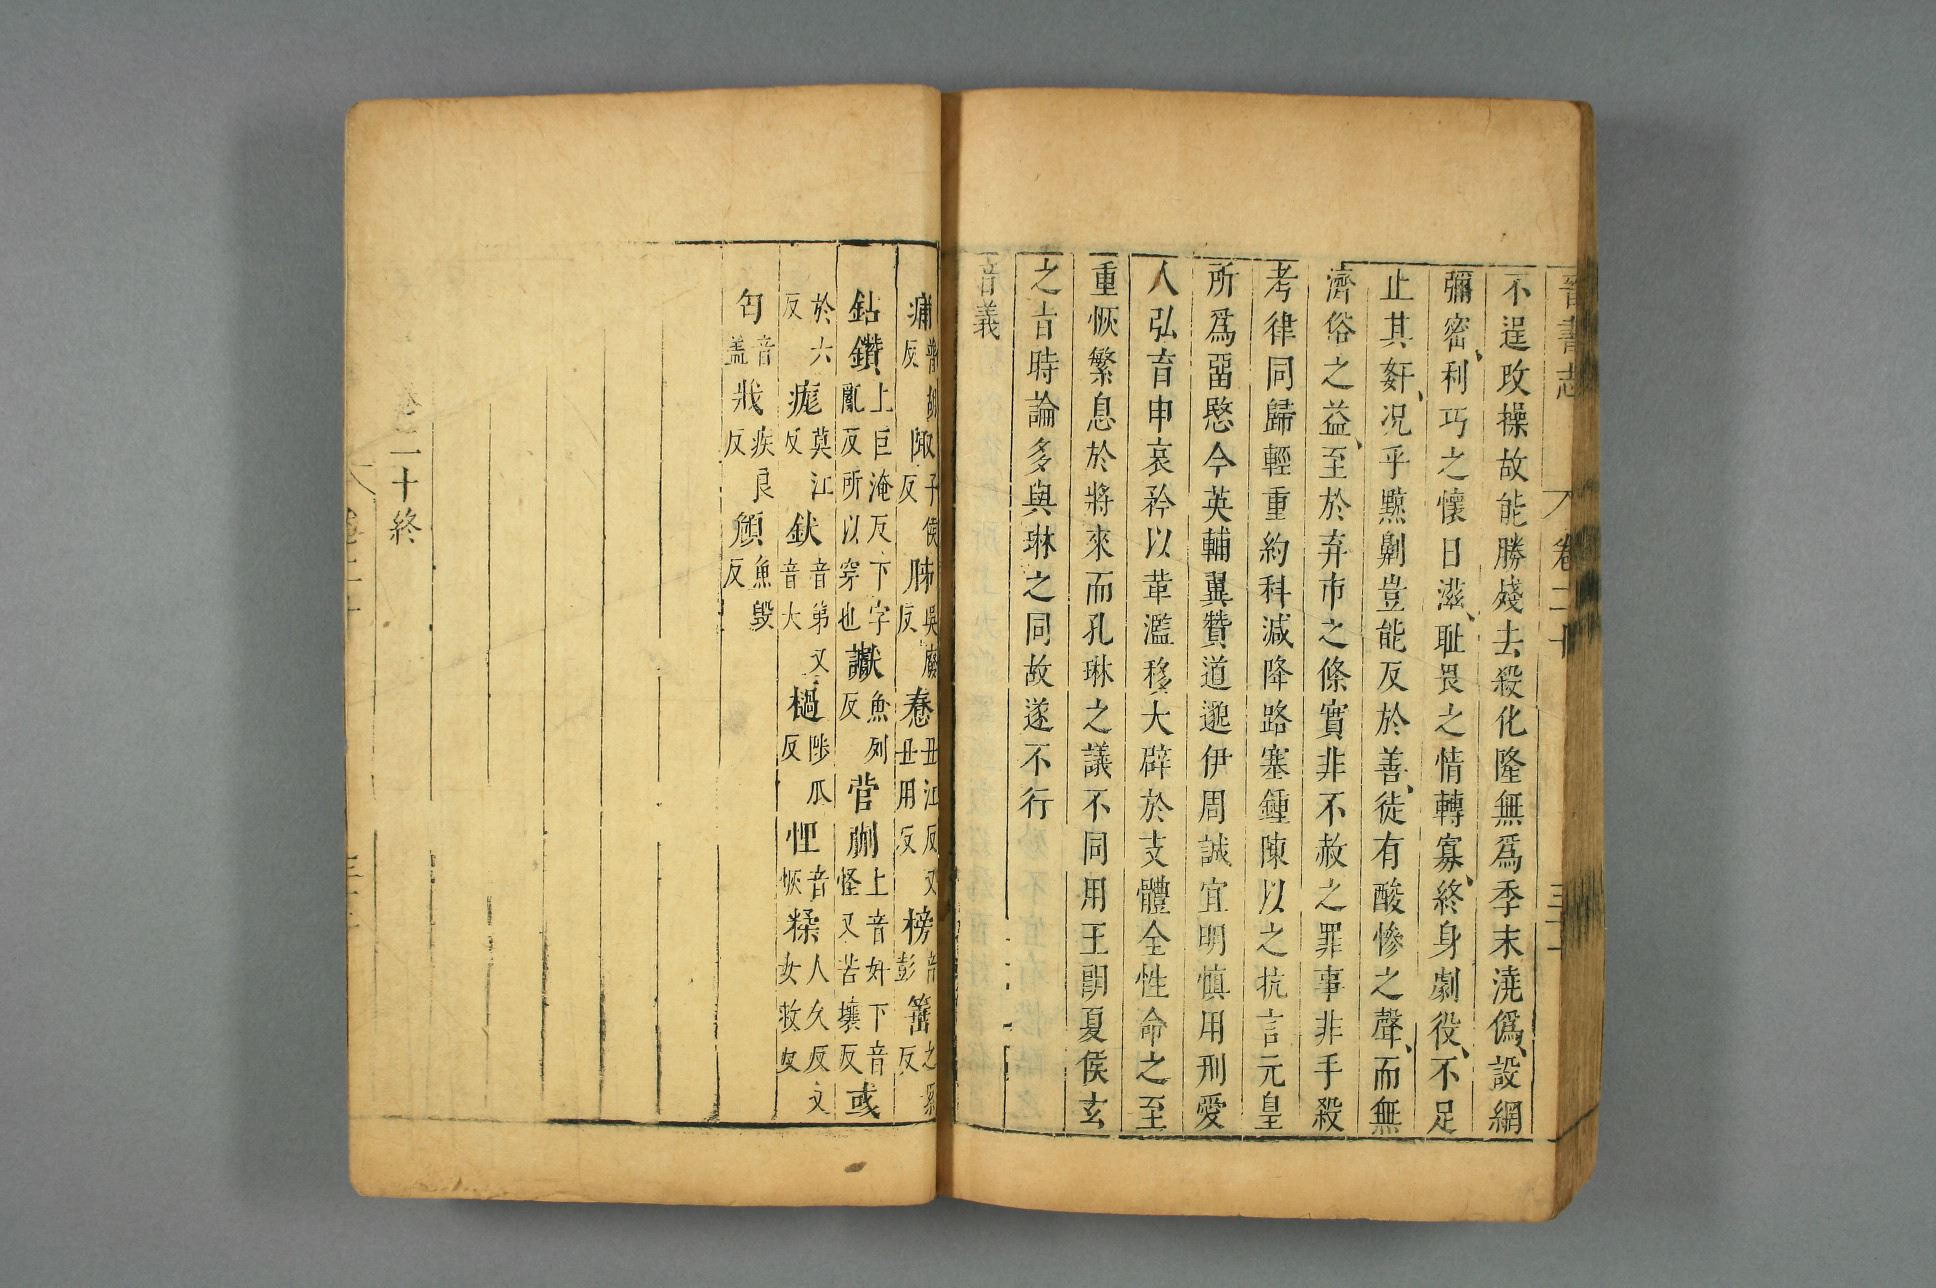 晉書志 卷二十 三十
不逞攻操故能勝殘去殺化隆無爲季末澆僞設網
彌密利巧之懷日滋恥畏之情轉寡終身劇役不足
止其奸況乎黥劓豈能反於善徒有酸慘之聲而無
濟俗之益至於弃市之條實非不赦之罪事非手殺
考律同歸輕重約科減降路塞鍾陳以之抗言元皇
所爲畱愍今英輔翼贊道邈伊周誠宜明慎用刑愛
人弘育申哀矜以革濫移大辟於支體全性命之至
重恢繁息於將來而孔琳之議不同用王朗夏侯玄
之旨時論多與琳之同故遂不行
音義
痡普胡反 陬子侯反 胏吳廢反 惷丑江反又丑用反 榜音彭 𥷚之累反
鉆鑽上巨淹反下字亂反所以穿也 讞魚列反 菅蒯上音奸下音怪又苦壞反 彧
於六反 痝莫江反 釱音第又音大 檛陟瓜反 悝音恢 糅人久反又女救反
匄音蓋 戕疾良反 頠魚毀反
卷二十終
卷二十 三十